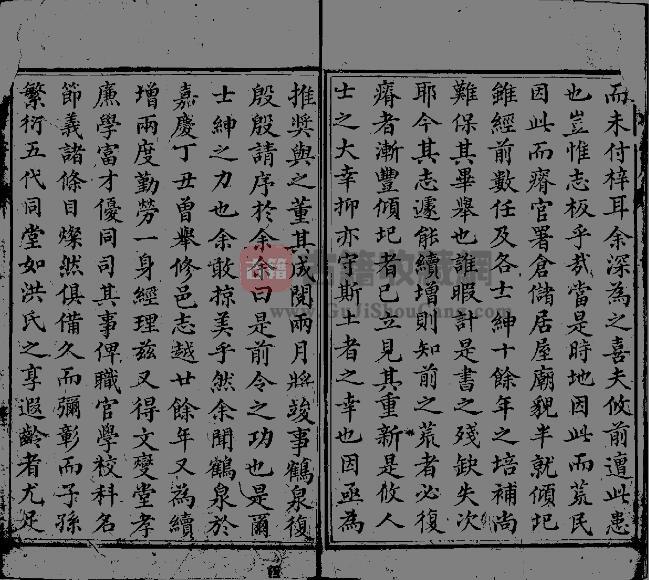 而未付梓耳余深為之喜夫攸前遭此患
也豈惟志板乎哉當是時地因此而荒民
因此而瘠官署倉儲居屋廟貌半就傾圮
雖經前數任及各士紳十餘年之培補尚
難保其畢舉也誰暇計是書之殘缺失次
耶今其志遽能續增則知前之荒者必復
瘠者漸豐傾圮者已立見其重新是攸人
士之大幸抑亦宰斯土者之幸也因亟為
推奨與之董其成閱兩月將竣事鶴泉復
殷殷請序於余余曰是前令之功也是爾
士紳之力也余敢掠美乎然余聞鶴泉於
嘉慶丁丑曾舉修邑志越廿餘年又為續
增兩度勤勞一身經理茲又得文燮堂孝
廉學富才優同司其事俾職官學校科名
節義諸條目燦然俱備久而彌彰而子孫
繁衍五代同堂如洪氏之享遐齡者尤足
四
古籍
古籍收藏網
www.GuJiShouCang.com